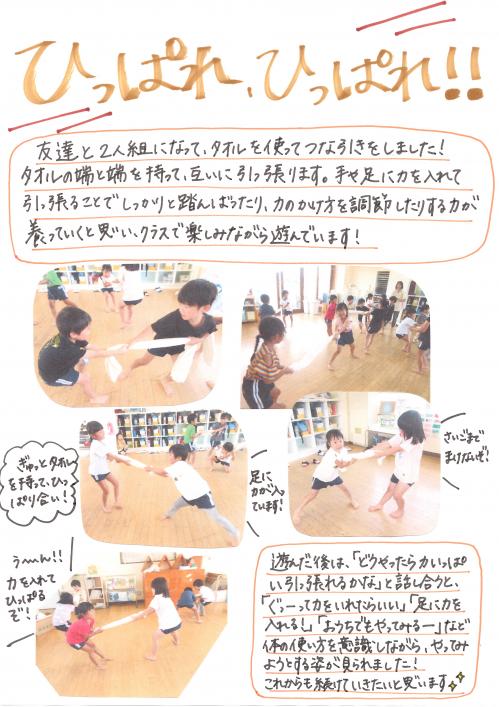 ひっぱれ、ひっぱれ!!
友達と2人組になって、タオルを使ってつな引きをしました!
タオルの端と端を持って、互いに引っ張ります。手や足に力を入れて
引っ張ることでしっかりと踏んばったり、力のかけ方を調節したりする力が
養っていくと思い、クラスで楽しみながら遊んでいます!
さいごまで
まけないぞ!
ぎゅっとタオル
を持って、ひっ
ぱり合い!
足に
力が入っ
ています!
う〜ん!!
力を入れて
ひっぱる
ぞ!
遊んだ後は、「どうやったら力いっぱ
い引っ張れるかな」と話し合うと、
「ぐーって力をいれたらいい」「足に力を
入れる!」「おうちでもやってみるー」など
体の使い方を意識しながら、やってみ
ようとする姿が見られました!
これからも続けていきたいと思います